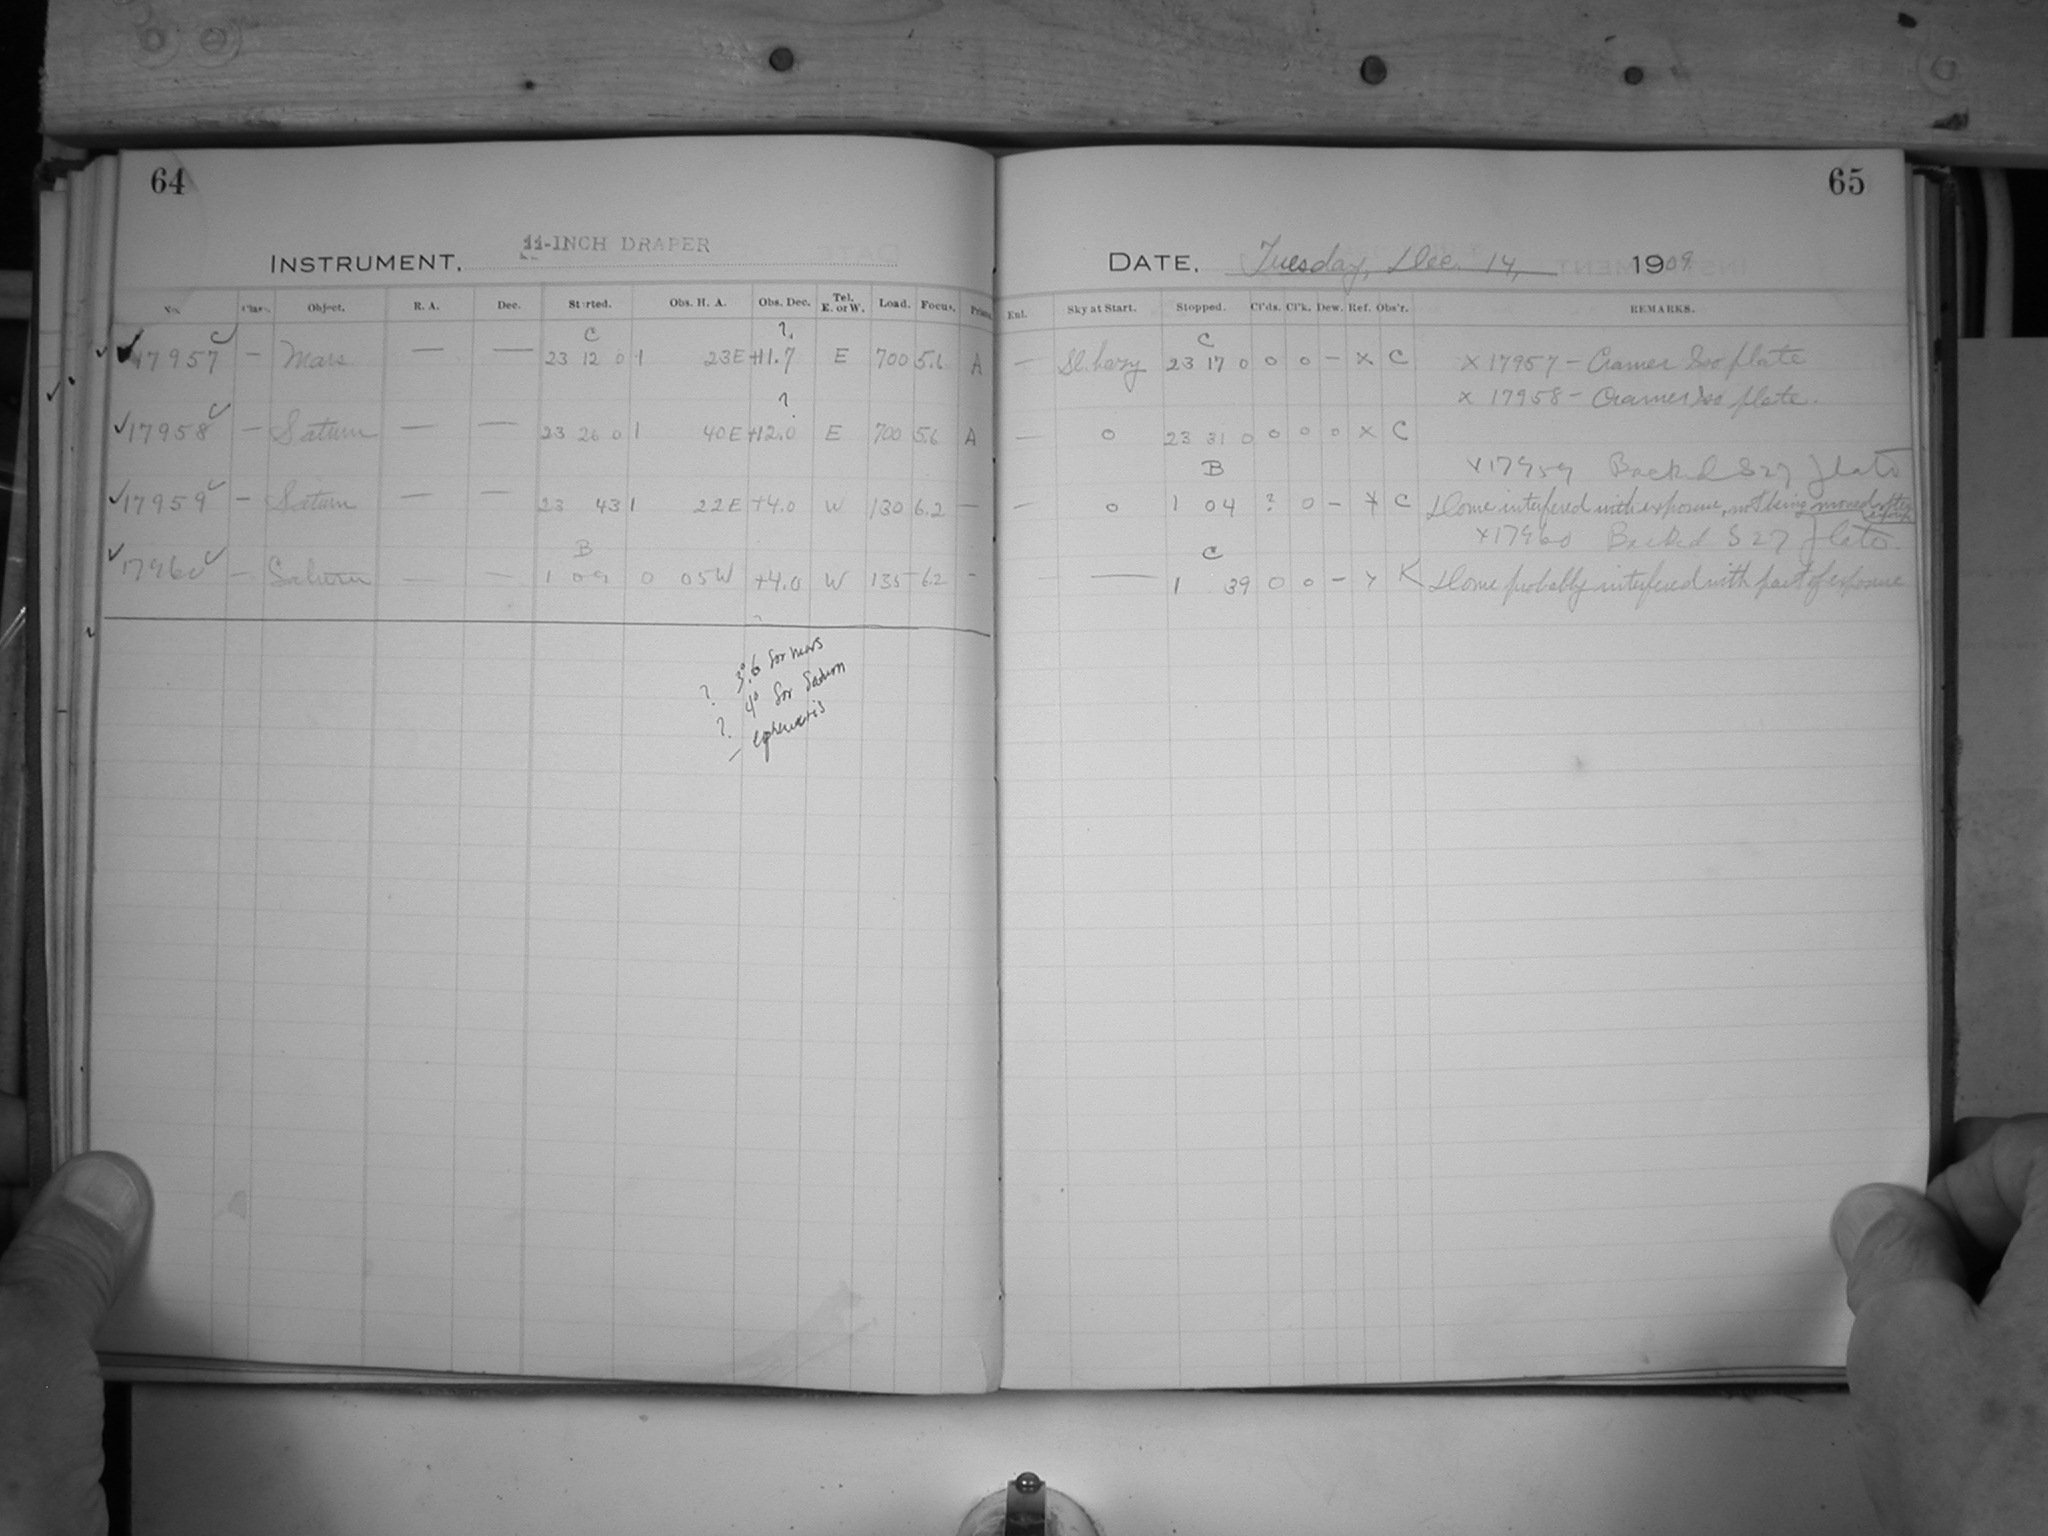 64
11-INCH DRAPER
INSTRUMENT.
No. Class. Object. R. A. Dec. Started. Obs. H. A. Obs. Dec. Tel. E. or W. Load. Focus.
C C ?
17957 — Mars — — 23 12 0 1 23 E +11.7 E 700 5.6 A
C ?
17958 — Saturn — — 23 26 0 1 40 E +12.0 E 700 5.6 A
17959 C — Saturn — — 23 43 1 22 E +4.0 W 130 6.2 —
B
17960 C — Saturn — — 1 09 0 05 W +4.0 W 135 6.2 -
? 3.°6 for Mars
? 4° for Saturn
— ephemeris
65
DATE, Tuesday, Dec. 14, 1909
Enl. Sky at Start. Stopped. Cl'ds. Cl'k. Dew. Ref. Obs'r. REMARKS.
C
— Sl. hazy 23 17 0 0 0 — x C x 17957 – Cramer Iso plate
x 17958 – Cramer Iso plate.
— 0 23 31 0 0 0 0 x C
B x 17959 Backed S 27 plate
— 0 1 04 ? 0 — x C Dome interfered with exposure, not being moved often enough
x 17960 Backed S 27 plate.
C
— 1 39 0 0 — x K Dome probably interfered with part of exposure